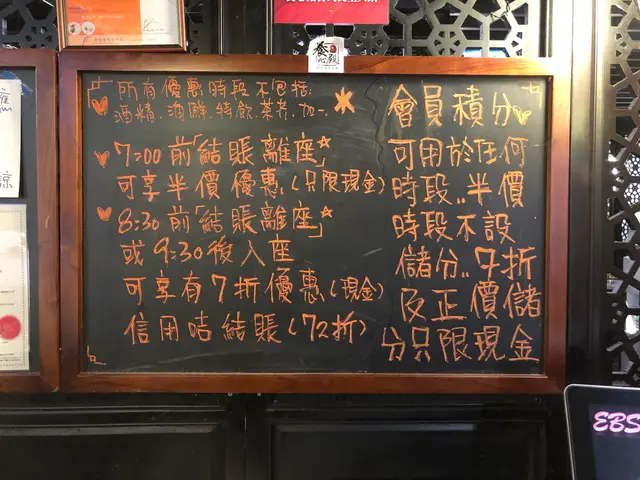 所有優惠時段不包括:
酒精.海鮮.特飲.茶芥.加一.
7:00 前「結賬離座」
可享半價優惠(只限現金)
8:30 前「結賬離座」
或 9:30 後入座
可享有7折優惠(現金)
信用咭結賬(72折)
會員積分
可用於任何
時段..半價
時段不設
儲分..7折
及正價儲
分只限現金
EBS